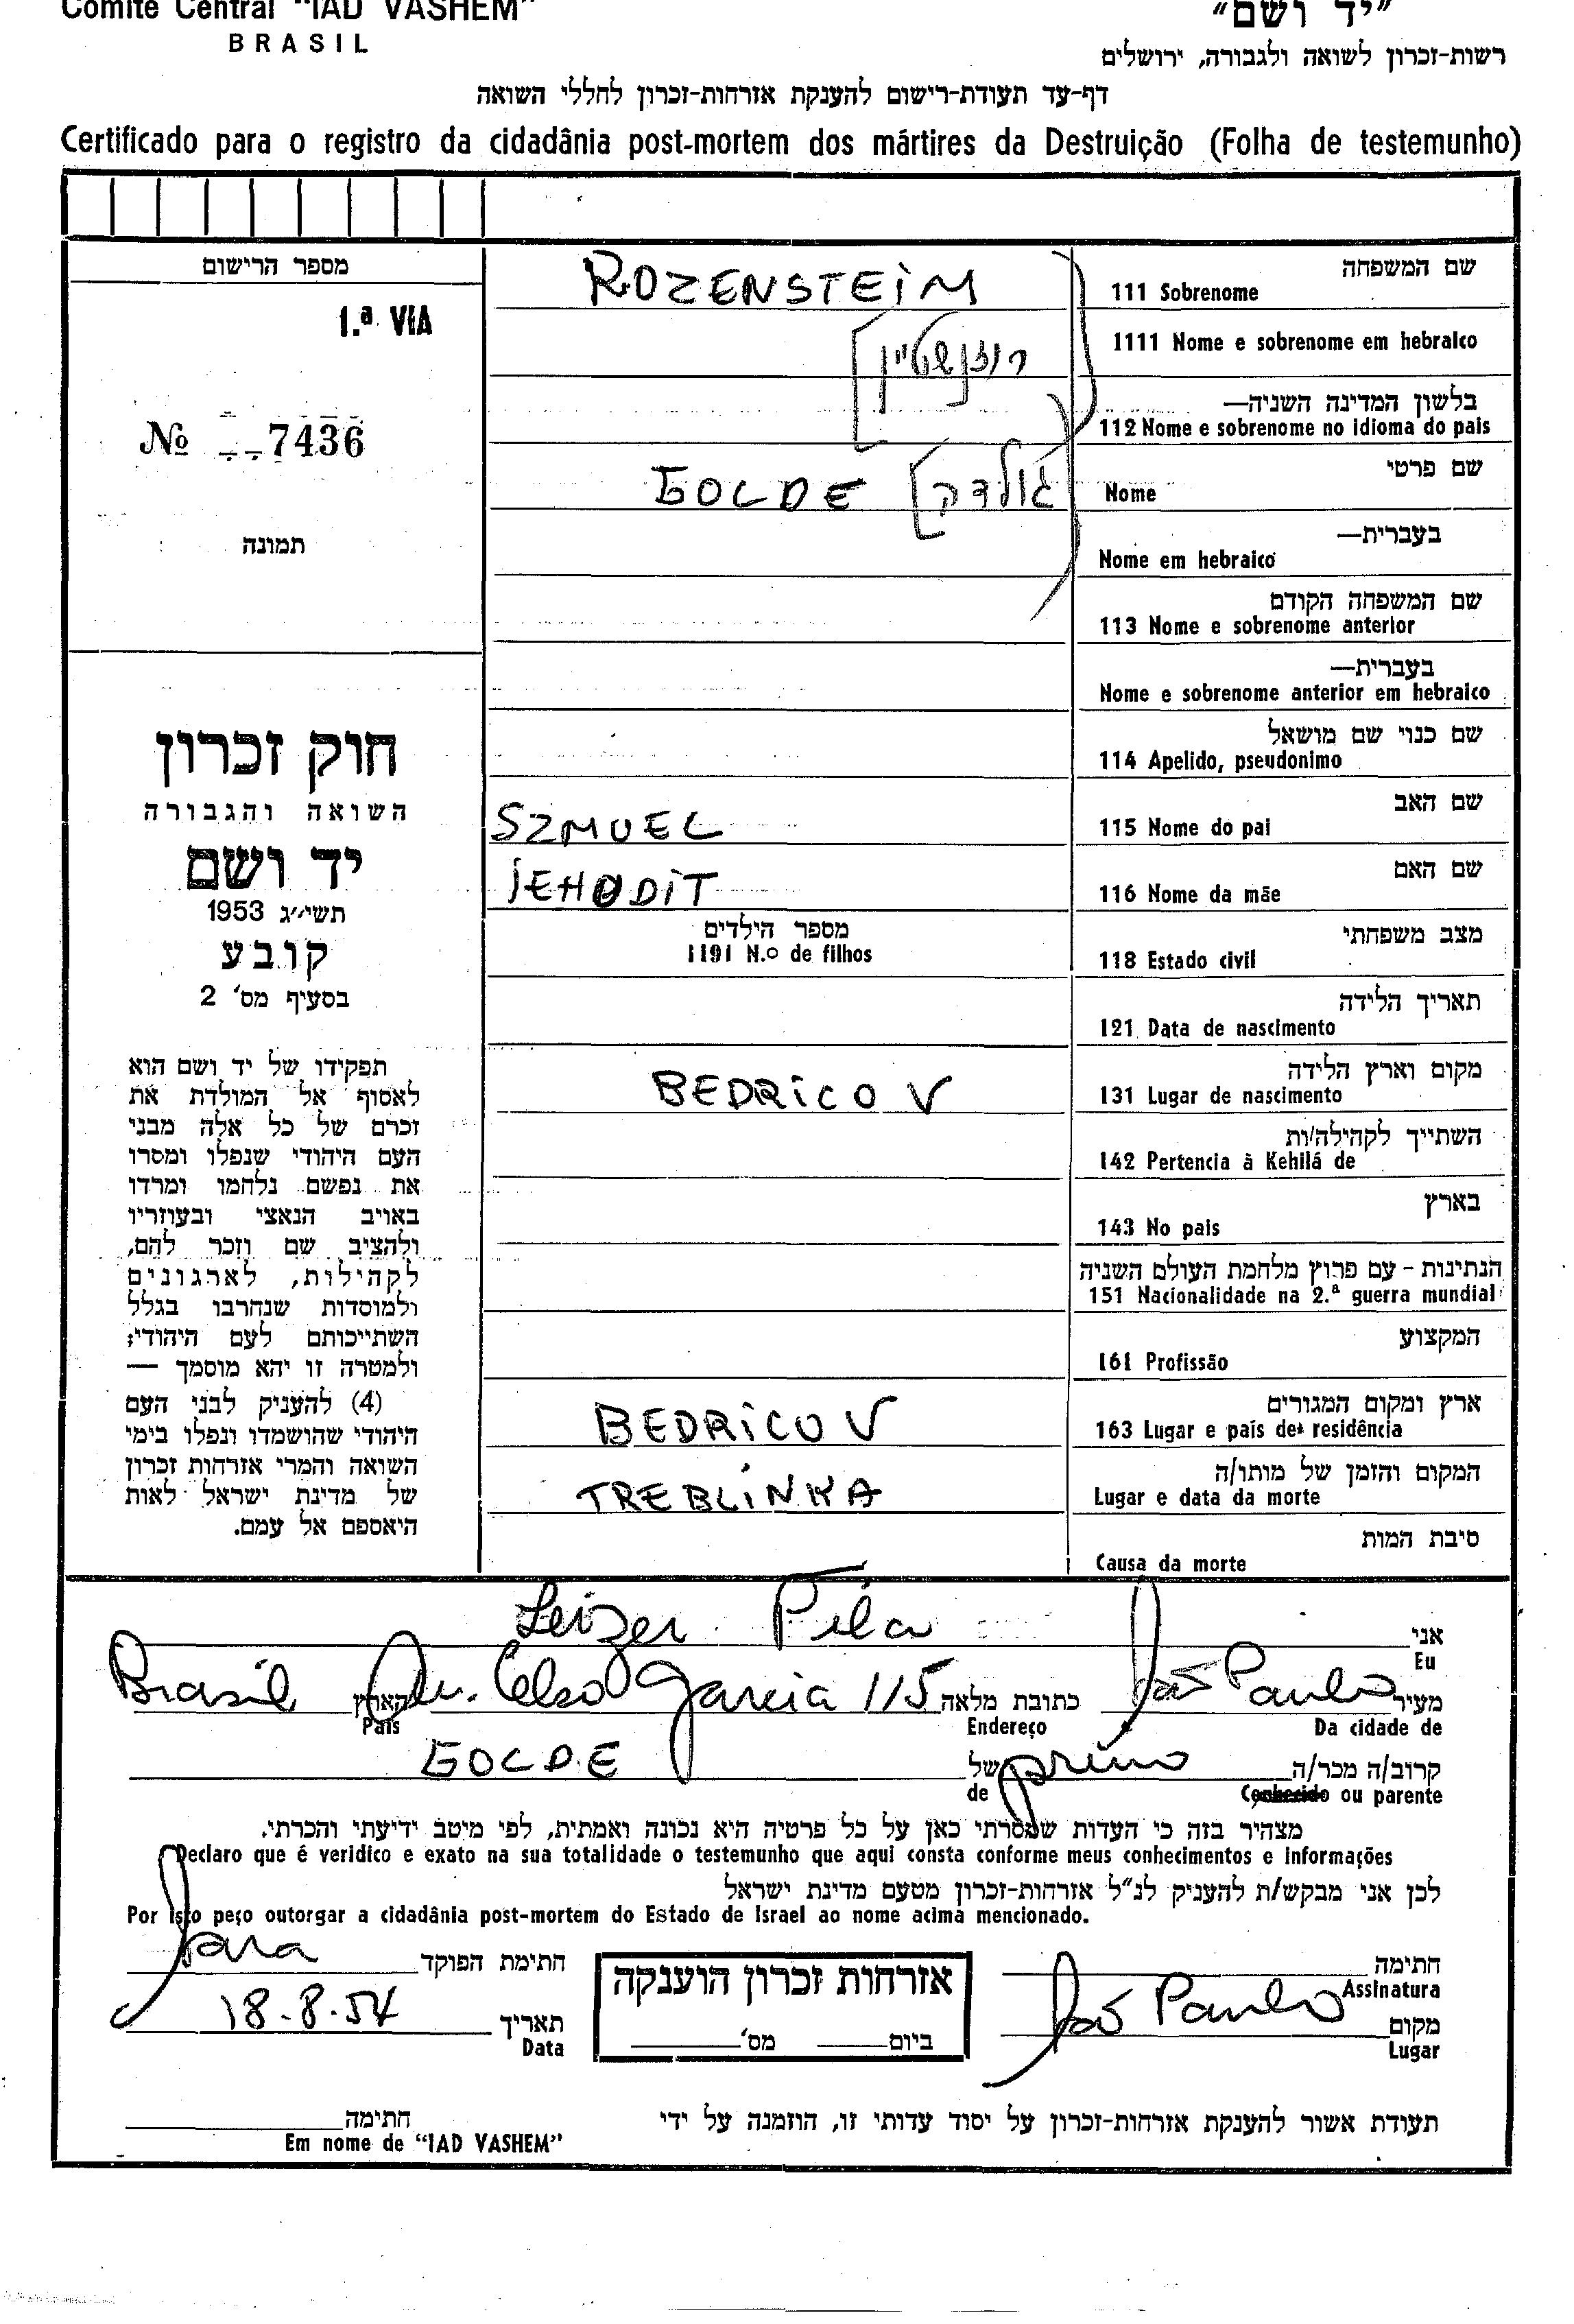 Comité Central "IAD VASHEM"
BRASIL
"יד ושם"
רשות-זכרון לשואה ולגבורה, ירושלים
דף-עד תעודת-רישום להענקת אזרחות-זכרון לחללי השואה
Certificado para o registro da cidadânia post-mortem dos mártires da Destruição (Folha de testemunho)
מספר הרישום
1.ª VIA
№ 7436
תמונה
חוק זכרון
השואה והגבורה
יד ושם
תשי״ג 1953
קובע
בסעיף מס' 2
תפקידו של יד ושם הוא
לאסוף אל המולדת את
זכרם של כל אלה מבני
העם היהודי שנפלו ומסרו
את נפשם נלחמו ומרדו
באויב הנאצי ובעוזריו
ולהציב שם וזכר להם,
לקהילות, לארגונים
ולמוסדות שנחרבו בגלל
השתייכותם לעם היהודי;
ולמטרה זו יהא מוסמך —
(4) להעניק לבני העם
היהודי שהושמדו ונפלו בימי
השואה והמרי אזרחות זכרון
של מדינת ישראל לאות
היאספם אל עמם.
שם המשפחה
111 Sobrenome ROZENSTEIM
1111 Nome e sobrenome em hebralco [רוזנשטיין]
בלשון המדינה השניה—
112 Nome e sobrenome no idioma do pais
שם פרטי
Nome GOLDE [גולדה]
בעברית—
Nome em hebraico
שם המשפחה הקודם
113 Nome e sobrenome anterior
בעברית—
Nome e sobrenome anterior em hebraico
שם כנוי שם מושאל
114 Apelido, pseudonimo
שם האב
115 Nome do pai SZMUEL
שם האם
116 Nome da mãe JEHUDIT
מצב משפחתי
118 Estado civil
מספר הילדים
1191 N.º de filhos
תאריך הלידה
121 Data de nascimento
מקום וארץ הלידה
131 Lugar de nascimento BEDRICOV
השתייך לקהילה/ות
142 Pertencia à Kehilá de
בארץ
143 No pais
הנתינות - עם פרוץ מלחמת העולם השניה
151 Nacionalidade na 2.ª guerra mundial
המקצוע
161 Profissão
ארץ ומקום המגורים
163 Lugar e país de residência BEDRICOV
המקום והזמן של מותו/ה
Lugar e data da morte TREBLINKA
סיבת המות
Causa da morte
אני Leizer Pila
Eu
מעיר São Paulo כתובת מלאה Av. Celso Garcia 115 הארץ Brasil
Da cidade de Endereço País
קרוב/ה מכר/ה primo של GOLDE
Conhecido ou parente de
מצהיר בזה כי העדות שמסרתי כאן על כל פרטיה היא נכונה ואמתית, לפי מיטב ידיעתי והכרתי.
Declaro que é veridico e exato na sua totalidade o testemunho que aqui consta conforme meus conhecimentos e informações
לכן אני מבקש/ת להעניק לנ"ל אזרחות-זכרון מטעם מדינת ישראל
Por isto peço outorgar a cidadânia post-mortem do Estado de Israel ao nome acima mencionado.
חתימה
Assinatura
חתימת הפוקד Sara
מקום São Paulo
Lugar
תאריך 18.8.54
Data
אזרחות זכרון הוענקה
ביום מס'
תעודת אשור להענקת אזרחות-זכרון על יסוד עדותי זו, הוזמנה על ידי
חתימה
Em nome de "IAD VASHEM"